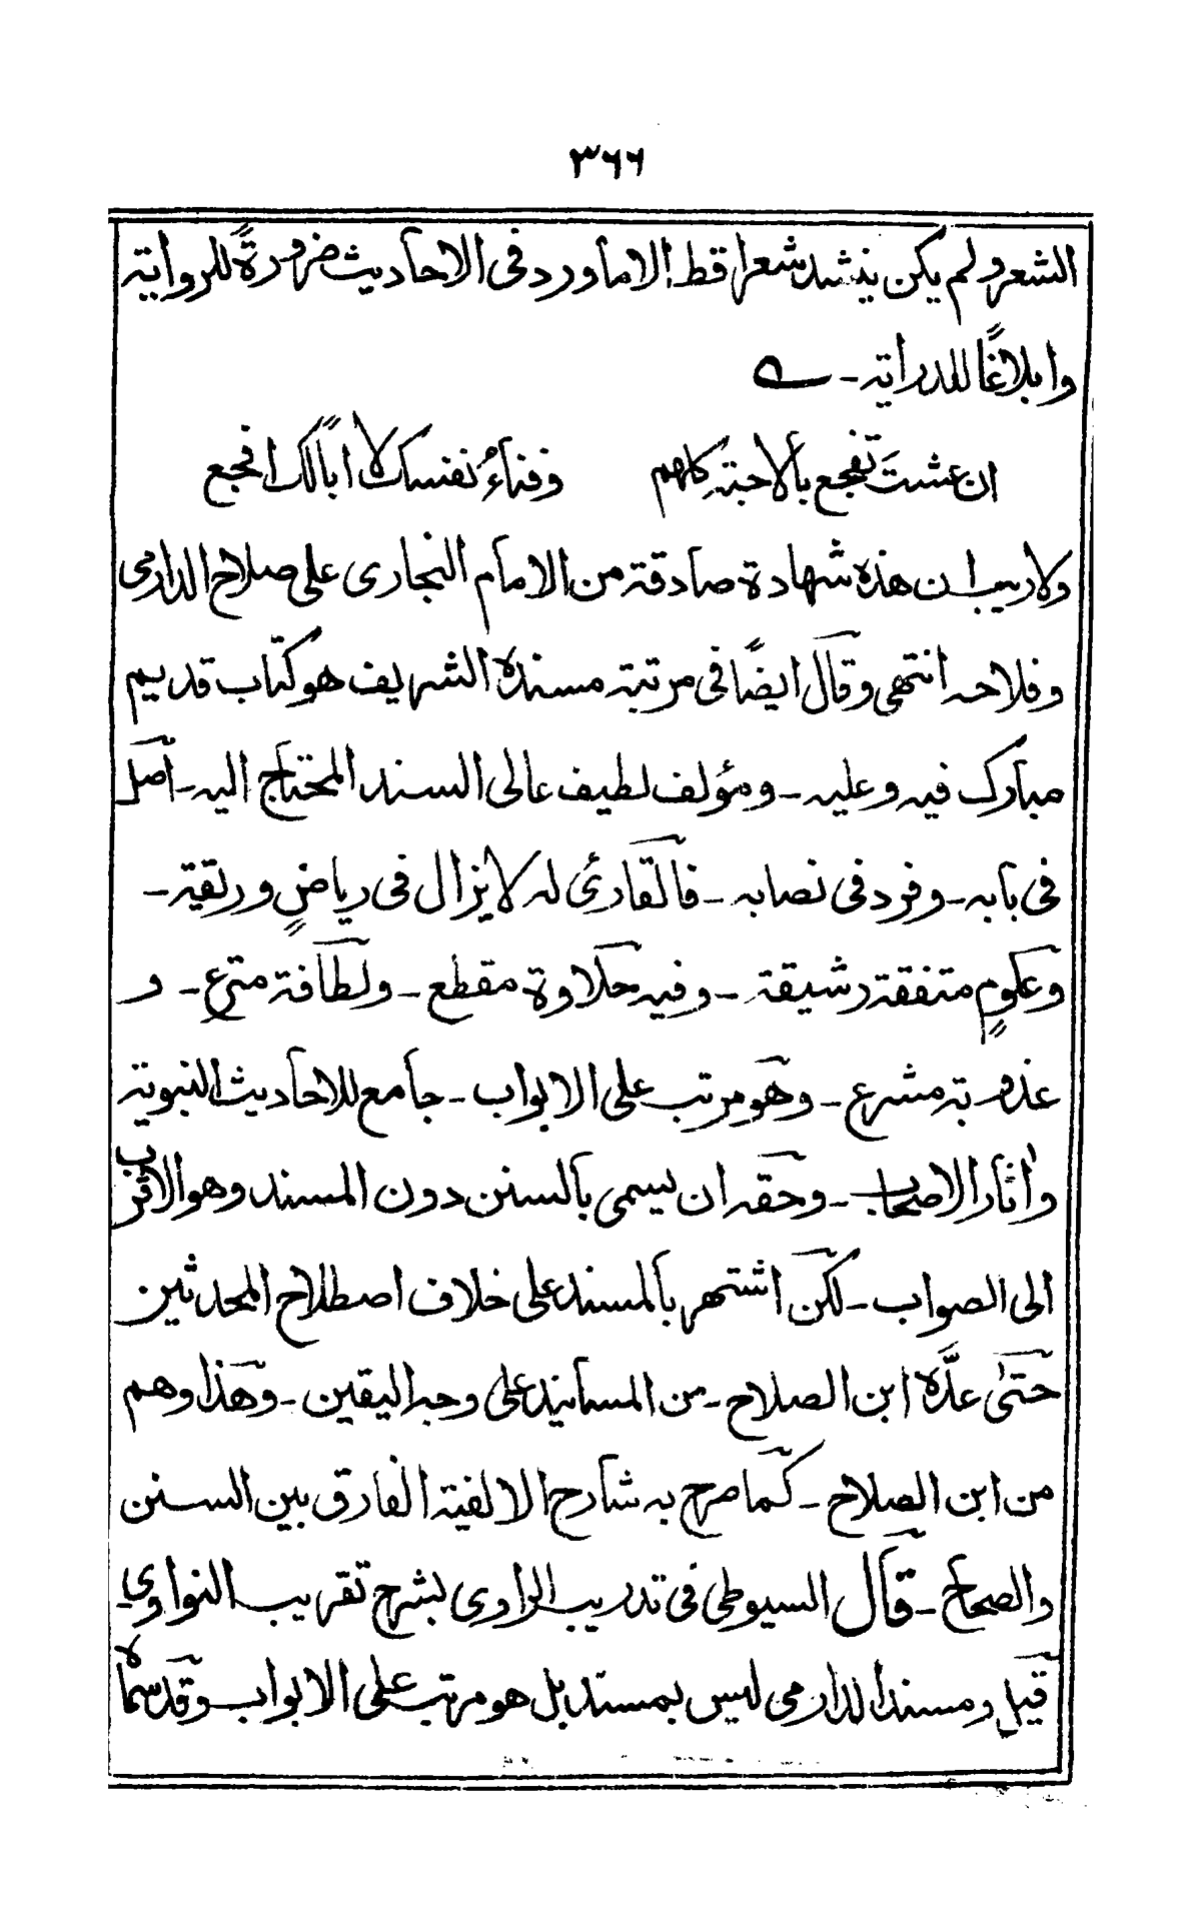 ٣٦٦
الشعر ولم يكن ينشد شعرا قط الا ما ورد فى الاحاديث ضرورةً للرواية
وابلاغًا للدراية ـ ے
ان عشتَ تفجع بالاحبة كلهم وفناءُ نفسك لا ابًالك افجع
ولاريب ان هذه شهادة صادقة من الامام البخارى على صلاح الدارمى
وفلاحه انتهى وقال ايضًا فى مرتبة مسنده الشريف هو كتاب قديم
مبارك فيه وعليه ـ ومؤلف لطيف عالى السند المحتاج اليه ـ اصل
فى بابه ـ وفرد فى نصابه ـ فالقارئ له لا يزال فى رياضٍ وريقة ـ
وعلومٍ متفقة رشيقة ـ وفيه حلاوة مقطع ـ ولطافة مترع ـ و
عذوبة مشرع ـ وهو مرتب على الابواب ـ جامع للاحاديث النبوية
واٰثار الاصحاب ـ وحقه ان يسمى بالسنن دون المسند وهو الاقرب
الى الصواب ـ لكن اشتهر بالمسند على خلاف اصطلاح المحدثين
حتىٰ عدَّه ابن الصلاح ـ من المسانيد على وجه اليقين ـ وهذا وهم
من ابن الصلاح ـ كما صرح به شارح الالفية الفارق بين السنن
والصحاح ـ قال السيوطى فى تدريب الراوى بشرح تقريب النواوى ـ
قيل ومسند الدارمى ليس بمسند بل هو مرتب على الابواب وقد سماه